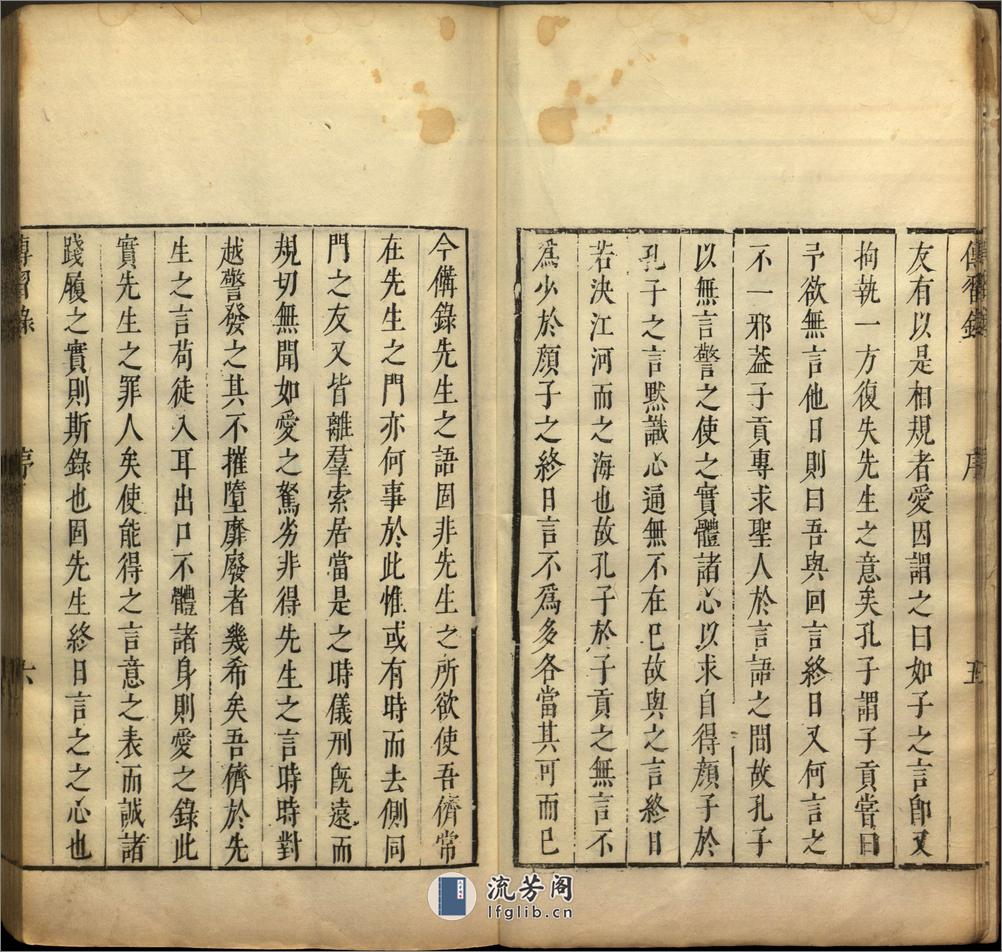 傳習錄 序 五
友有以是相規者愛因謂之曰如子之言卽又
拘執一方復失先生之意矣孔子謂子貢嘗曰
予欲無言他日則曰吾與回言終日又何言之
不一邪蓋子貢專求聖人於言語之間故孔子
以無言警之使之實體諸心以求自得顏子於
孔子之言默識心通無不在已故與之言終日
若決江河而之海也故孔子於子貢之無言不
爲少於顏子之終日言不爲多各當其可而已
今備錄先生之語固非先生之所欲使吾儕常
在先生之門亦何事於此惟或有時而去側同
門之友又皆離羣索居當是之時儀刑旣遠而
規切無聞如愛之駑劣非得先生之言時時對
越警發之其不摧墮靡廢者幾希矣吾儕於先
生之言苟徒入耳出口不體諸身則愛之錄此
實先生之罪人矣使能得之言意之表而誠諸
踐履之實則斯錄也固先生終日言之之心也
傳習錄 序 六
流芳阁
lfglib.cn